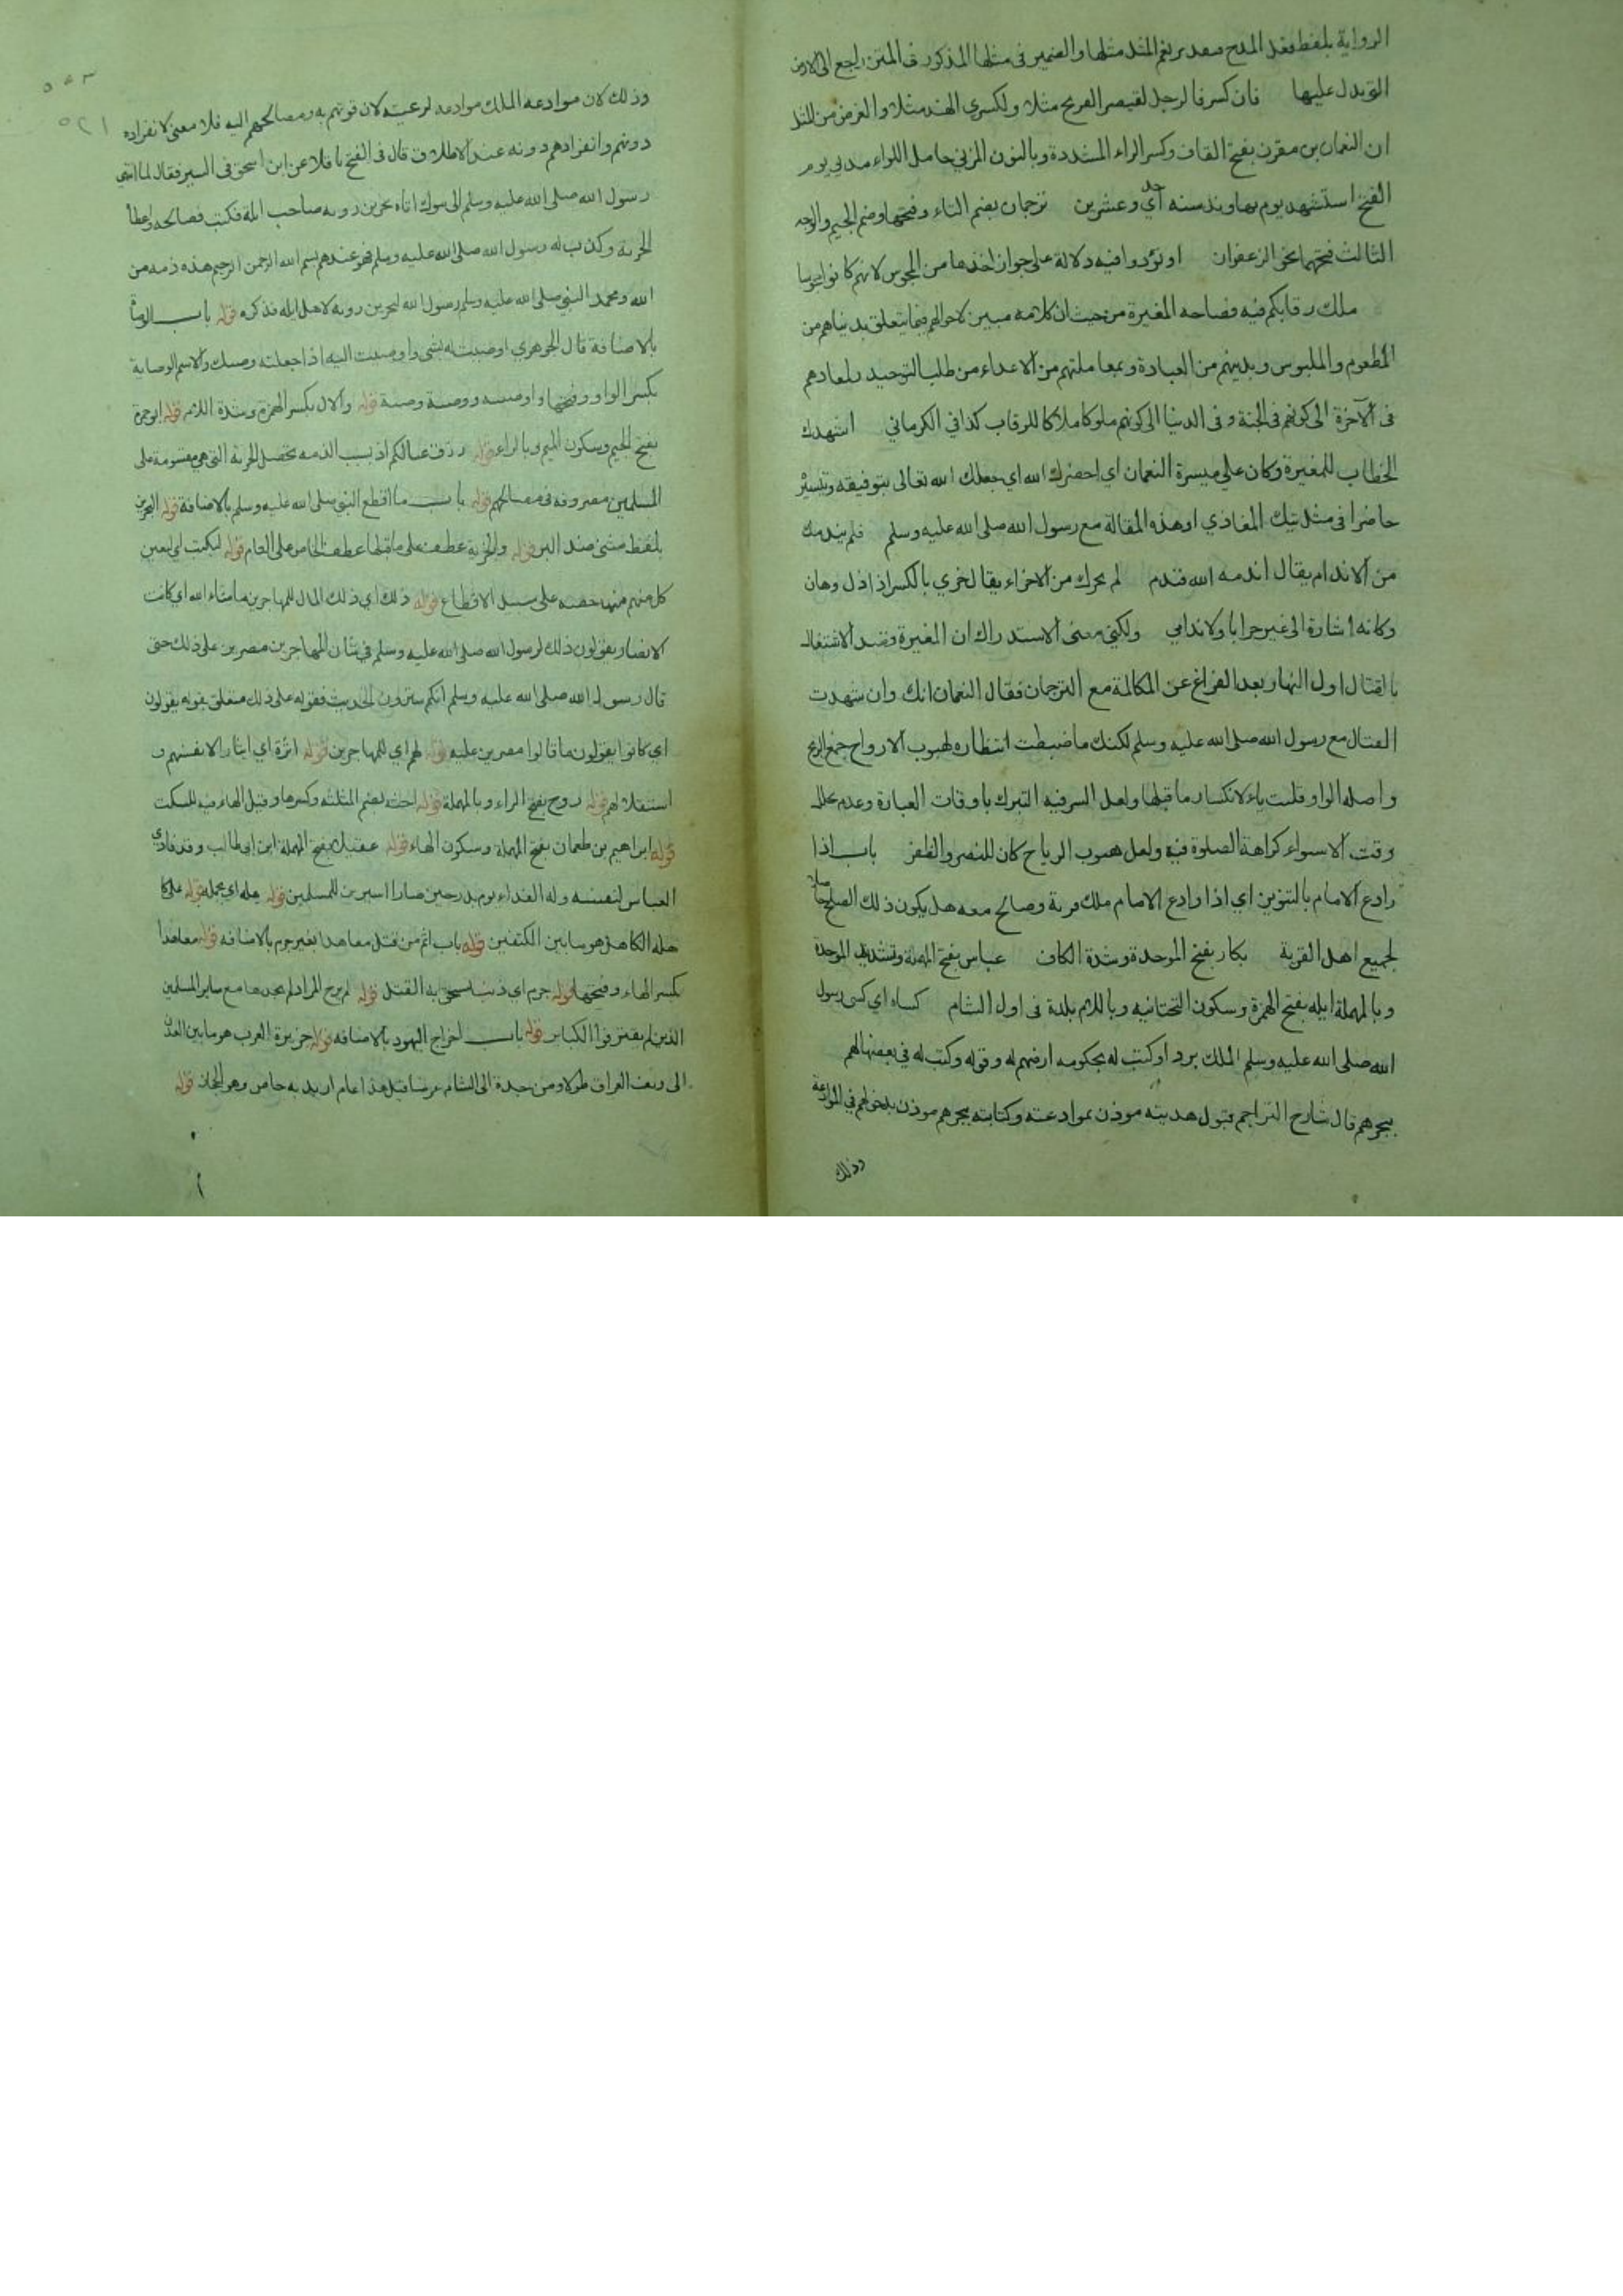 الرواية بلفظ فقد المدح صعد برفع المثل مثلها والضمير في مثلها المذكور في المتن راجع الى الارض
التي يدل عليها فان كسر فالرجل لقيصر الفرنج مثلا ولكسرى الهند مثلا والغرض من المثل
ان النعمان بن مقرن بفتح القاف وكسر الراء المشددة وبالنون المزني حامل اللواء مدني يوم
الفتح استشهد يوم بهاوند سنه احدى وعشرين ترجمان بضم التاء وفتحها وضم الجيم والوجه
الثالث فتحهما نحو الزعفران او تؤدوا فيه دلالة على جواز اخذها من المجوس لانهم كانوا مجوسا
ملك رقابكم فيه فصاحه المغيرة من حيث ان كلامه مبين لاحوالهم فيما يتعلق بدنياهم من
المطعوم والملبوس وبدينهم من العبادة وبمعاملتهم من الاعداء من طلب التوحيد ولمعادهم
في الآخرة الى كونهم في الجنة وفي الدنيا الى كونهم ملوكا ملاكا للرقاب كذا في الكرماني اشهدك
الخطاب للمغيرة وكان على ميسرة النعمان اي احضرك الله اي جعلك الله تعالى بتوفيقه وتيسير
حاضرا في مثل تلك المغازي او هذه المقالة مع رسول الله صلى الله عليه وسلم فلم يندمك
من الاندام يقال اندمه الله فندم لم يخزك من الاخزاء يقال خزي بالكسر اذا ذل وهان
وكانه اشارة الى غير خزايا ولا ندامى ولكني معنى الاستدراك ان المغيرة قصد الاشتغال
بالقتال اول النهار بعد الفراغ عن المكالمة مع الترجمان فقال النعمان انك وان شهدت
القتال مع رسول الله صلى الله عليه وسلم لكنك ما ضبطت انتظاره لهبوب الارواح جمع الريح
واصله الواو قلبت ياء لانكسار ما قبلها ولعل السر فيه التبرك باوقات العبادة وعدم
وقت الاستواء كراهة الصلوة فيه ولعل هبوب الرياح كان للنصر والظفر باب اذا
وادع الامام بالتنوين اي اذا وادع الامام ملك قرية وصالح معه هل يكون ذلك الصلح
لجميع اهل القرية بكار بفتح الموحدة وشدة الكاف عباس بفتح المهملة وتشديد الموحدة
وبالمهملة ايله بفتح الهمزة وسكون التحتانيه وباللام بلدة في اول الشام كساه اي كسى رسول
الله صلى الله عليه وسلم الملك بردا وكتب له بحكومه ارضهم له وقوله وكتب له في بعضها لهم
ببحرهم قال شارح التراجم قبول هديته موذن بموادعته وكتابته ببحرهم موذن بدخولهم في الموادعة
وذلك
٥٤٣
٥٢١
وذلك لان موادعه الملك موادعه لرعيته لان قوتهم به ومصالحهم اليه فلا معنى لانفراده
دونهم وانفرادهم دونه عند الاطلاق قال في الفتح ناقلا عن ابن اسحق في السير فقال لما انتهى
رسول الله صلى الله عليه وسلم الى تبوك اتاه بحر بن روبه صاحب ايلة فكتب فصالحه واعطا
الجزية وكتب له رسول الله صلى الله عليه وسلم فهو عندهم بسم الله الرحمن الرحيم هذه ذمه من
الله ومحمد النبي صلى الله عليه وسلم رسول الله لبحر بن روبه لاهل ايله فذكره قوله باب الوصا
بالاضافة قال الجوهري اوصيت له بشي واوصيت اليه اذا جعلته وصيك والاسم الوصاية
بكسر الواو وفتحها واوصيته ووصيته وصية قوله والال بكسر الهمزة وشدة اللام قوله ابو جمرة
بفتح الجيم وسكون الميم وبالراء قوله رزق عيالكم اذ بسبب الذمه تحصل الجزية التي هي مقسومة على
المسلمين مصروفه في مصالحهم قوله باب ما اقطع النبي صلى الله عليه وسلم بالاضافة قوله البحرين
بلفظ مثنى ضد البر قوله والجزية عطف على ما قبلها عطف الخاص على العام قوله ليكتب لي يعين
كل منهم منها حصه على سبيل الاقطاع قوله ذلك اي ذلك المال للمهاجرين ما شاء الله اي كانت
الانصار يقولون ذلك لرسول الله صلى الله عليه وسلم في شان المهاجرين مصرين على ذلك حتى
قال رسول الله صلى الله عليه وسلم انكم سترون الحديث فقوله على ذلك متعلق بقوله يقولون
اي كانوا يقولون ما قالوا مصرين عليه قوله لهم اي للمهاجرين قوله اثرة اي ايثارا لانفسهم و
استقلالا لهم قوله روح بفتح الراء وبالمهملة قوله احثه بضم المثلثه وكسرها وقيل الهاء فيه للسكت
قوله ابراهيم بن طهمان بفتح المهملة وسكون الهاء قوله عقيل بفتح المهملة ابن ابي طالب وقد فادى
العباس لنفسه وله الفداء يوم بدر حين صارا اسيرين للمسلمين قوله يقله اي يحمله قوله على كا
هله الكاهل هو ما بين الكتفين قوله باب اثم من قتل معاهدا بغير جرم بالاضافه قوله معاهدا
بكسر الهاء وفتحها قوله جرم اي ذنب يستحق به القتل قوله لم يرح المراد لم يجدها مع ساير المسلمين
الذين لم يقترفوا الكباير قوله باب اخراج اليهود بالاضافه قوله جزيرة العرب هو ما بين العدن
الى ريف العراق طولا ومن جدة الى الشام عرضا قيل هذا عام اريد به خاص وهو الحجاز قوله